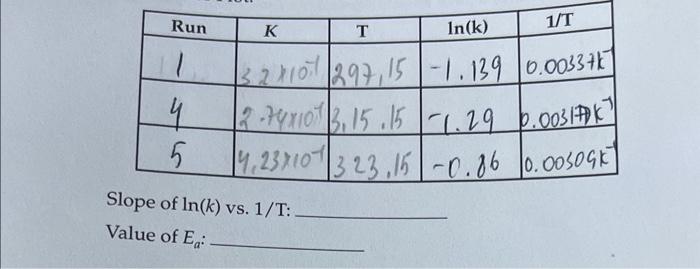 Run K T ln(k) 1/T
1 3.2x10⁻¹ 297,15 -1.139 0.00337K⁻¹
4 2.74x10⁻¹ 3,15.15 -1.29 0.00317K⁻¹
5 4,23x10⁻¹ 323.15 -0.86 0.00309K⁻¹
Slope of ln(k) vs. 1/T:
Value of Eₐ: